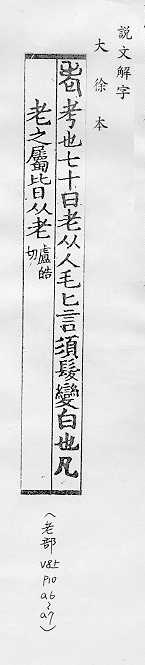 説文解字
大徐本
老 考也七十曰老从人毛匕言須髮變白也凡
老之屬皆曰从老 盧皓切
（老部 v8上 p10 a6~a7）